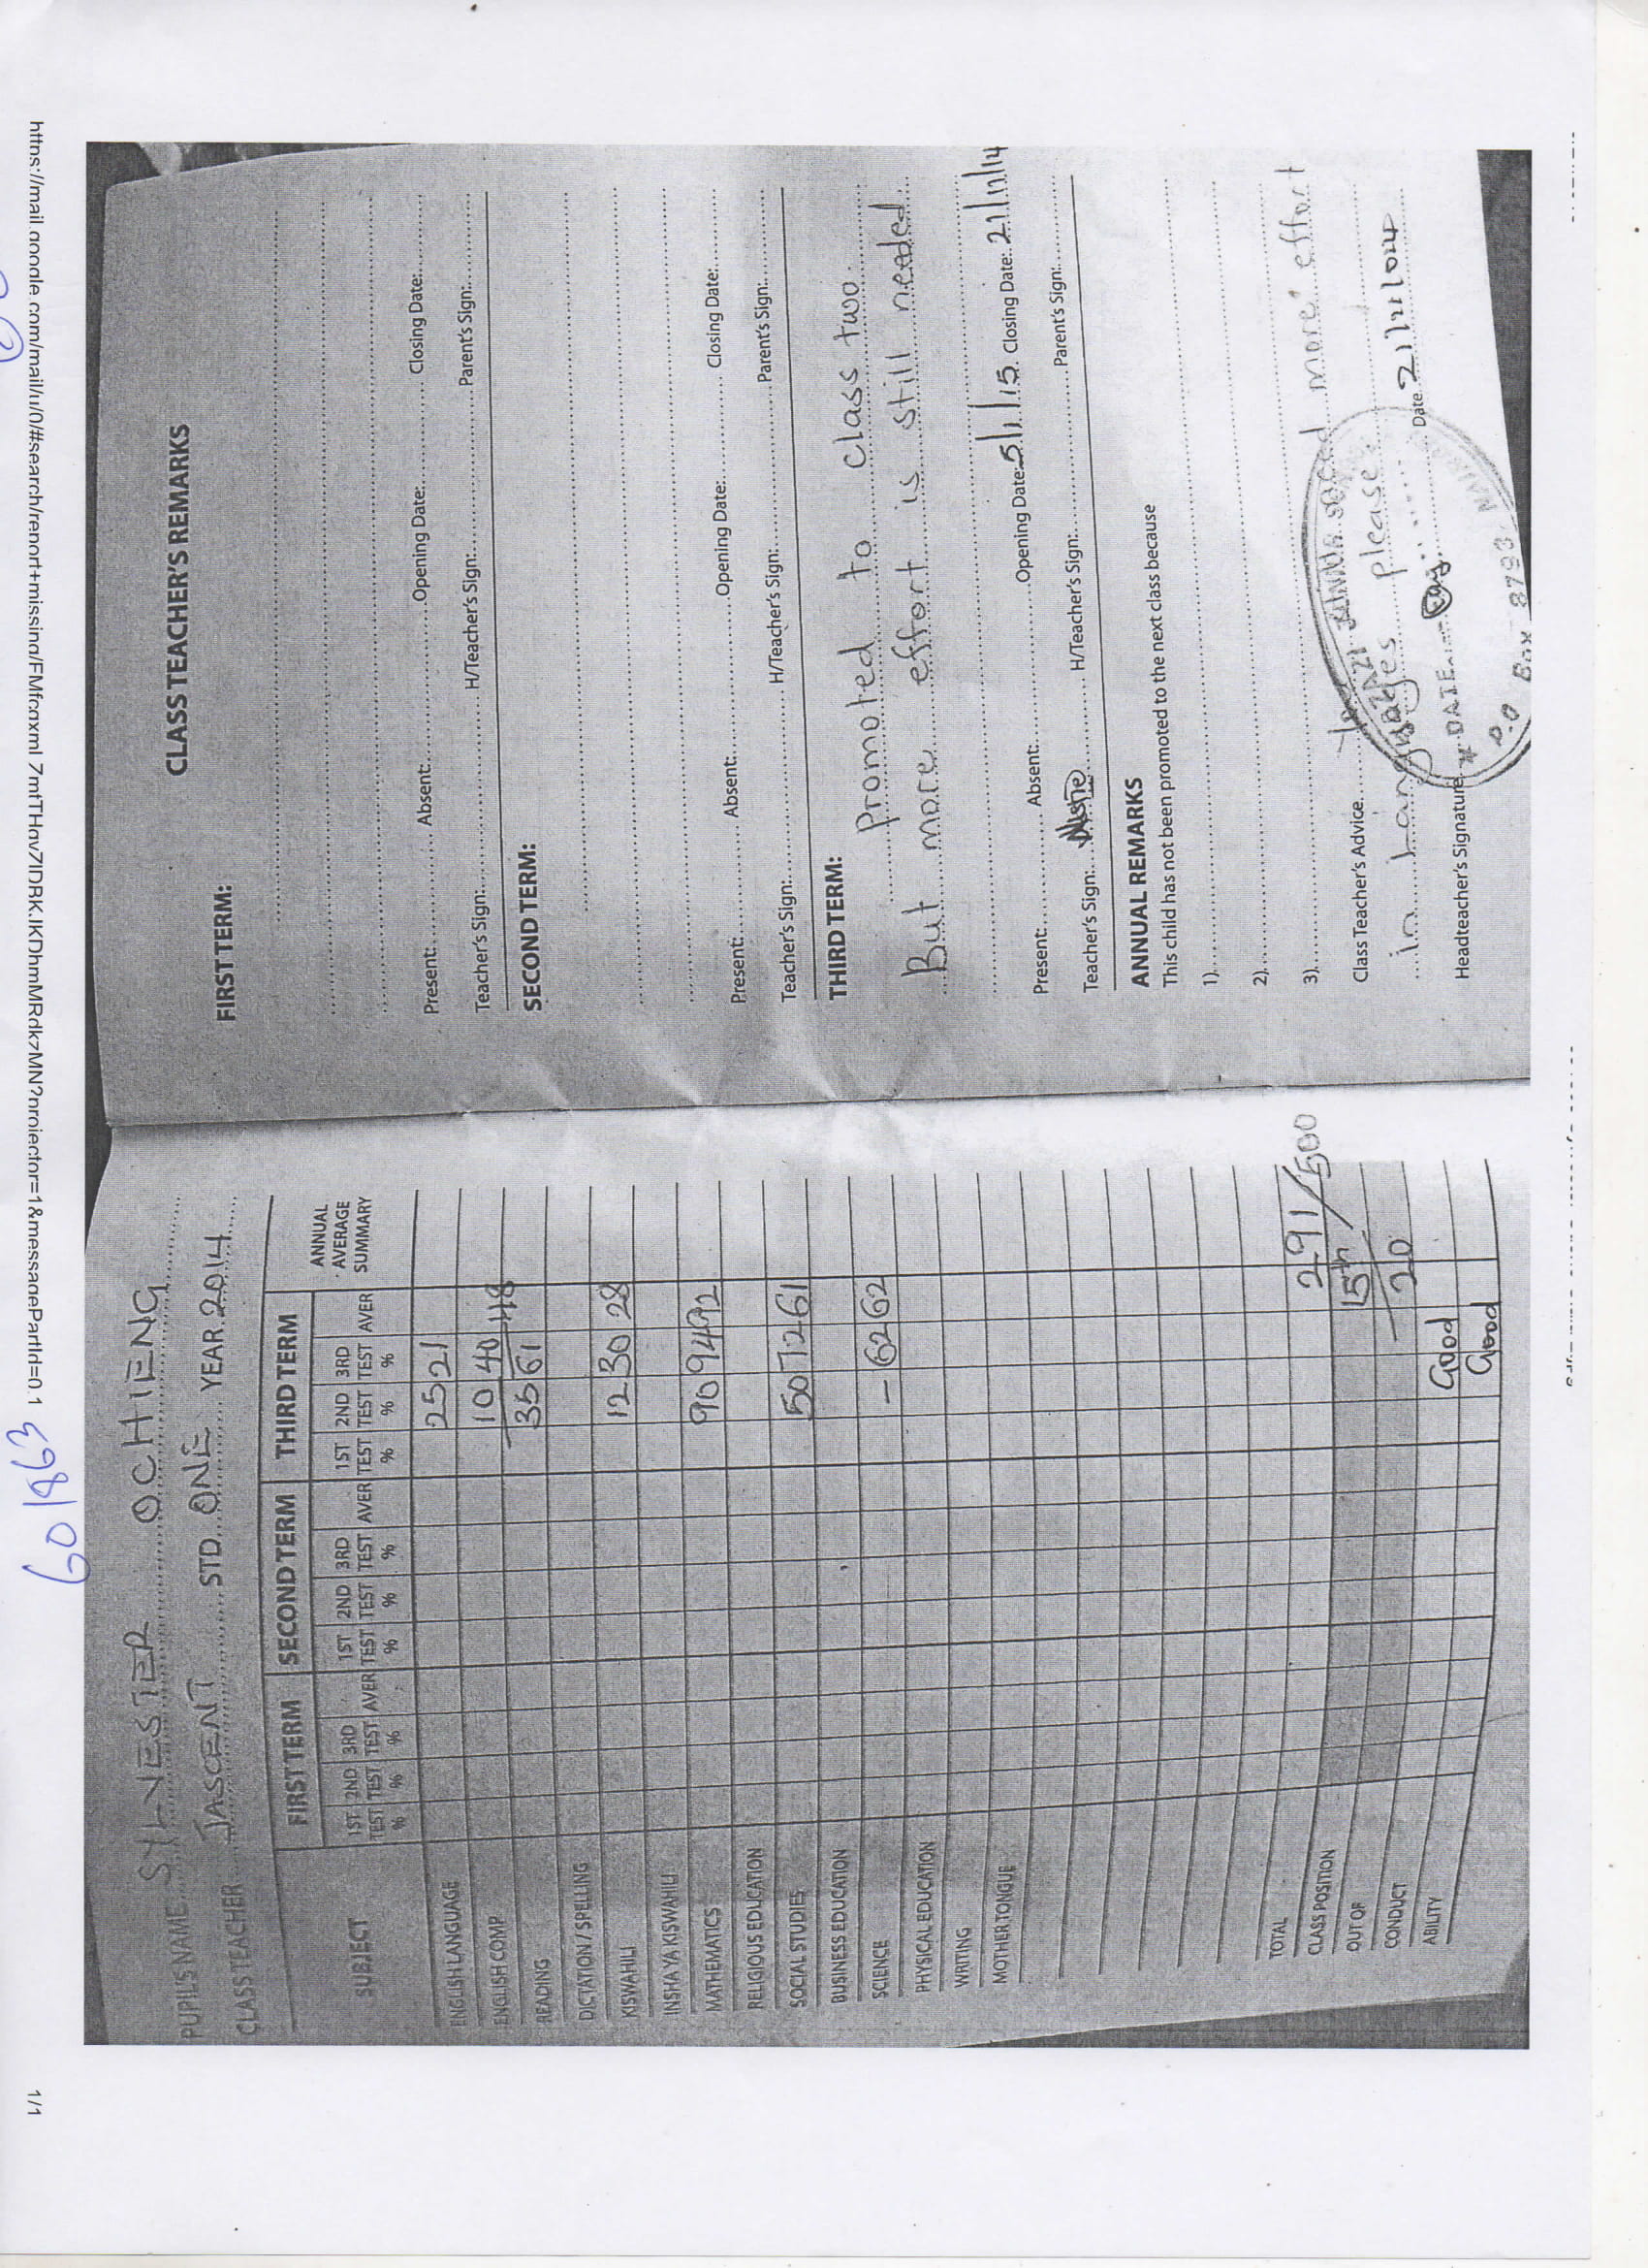 https://mail.google.com/mail/u/0/#search/report+missing/FMfcgxmL7mtTHqv7lDRKJKDhmMRdkzMN?projector=1&messagePartId=0.1
1/1
601863
PUPILS NAME SYLVESTER OCHIENG
CLASS TEACHER JASCENT STD. ONE YEAR 2014
SUBJECT FIRST TERM SECOND TERM THIRD TERM ANNUAL AVERAGE SUMMARY
1ST TEST % 2ND TEST % 3RD TEST % AVER 1ST TEST % 2ND TEST % 3RD TEST % AVER 1ST TEST % 2ND TEST % 3RD TEST % AVER
ENGLISH LANGUAGE 25 21
ENGLISH COMP 10 40 48
READING 35 61
DICTATION / SPELLING
KISWAHILI 12 30 28
INSHA YA KISWAHILI
MATHEMATICS 90 94 92
RELIGIOUS EDUCATION
SOCIAL STUDIES 50 72 61
BUSINESS EDUCATION
SCIENCE - 62 62
PHYSICAL EDUCATION
WRITING
MOTHER TONGUE
TOTAL 291/500
CLASS POSITION 15th
OUT OF 20
CONDUCT Good
ABILITY Good
CLASS TEACHER'S REMARKS
FIRST TERM:
Present: Absent: Opening Date: Closing Date:
Teacher's Sign: H/Teacher's Sign: Parent's Sign:
SECOND TERM:
Present: Absent: Opening Date: Closing Date:
Teacher's Sign: H/Teacher's Sign: Parent's Sign:
THIRD TERM:
Promoted to class two.
But more effort is still needed
Present: Absent: Opening Date: 5/1/15. Closing Date: 21/11/14
Teacher's Sign: H/Teacher's Sign: Parent's Sign:
ANNUAL REMARKS
This child has not been promoted to the next class because
1)
2)
3)
Class Teacher's Advice more effort
in Languages please.
Headteacher's Signature Date
* DATE
P.O Box 8793